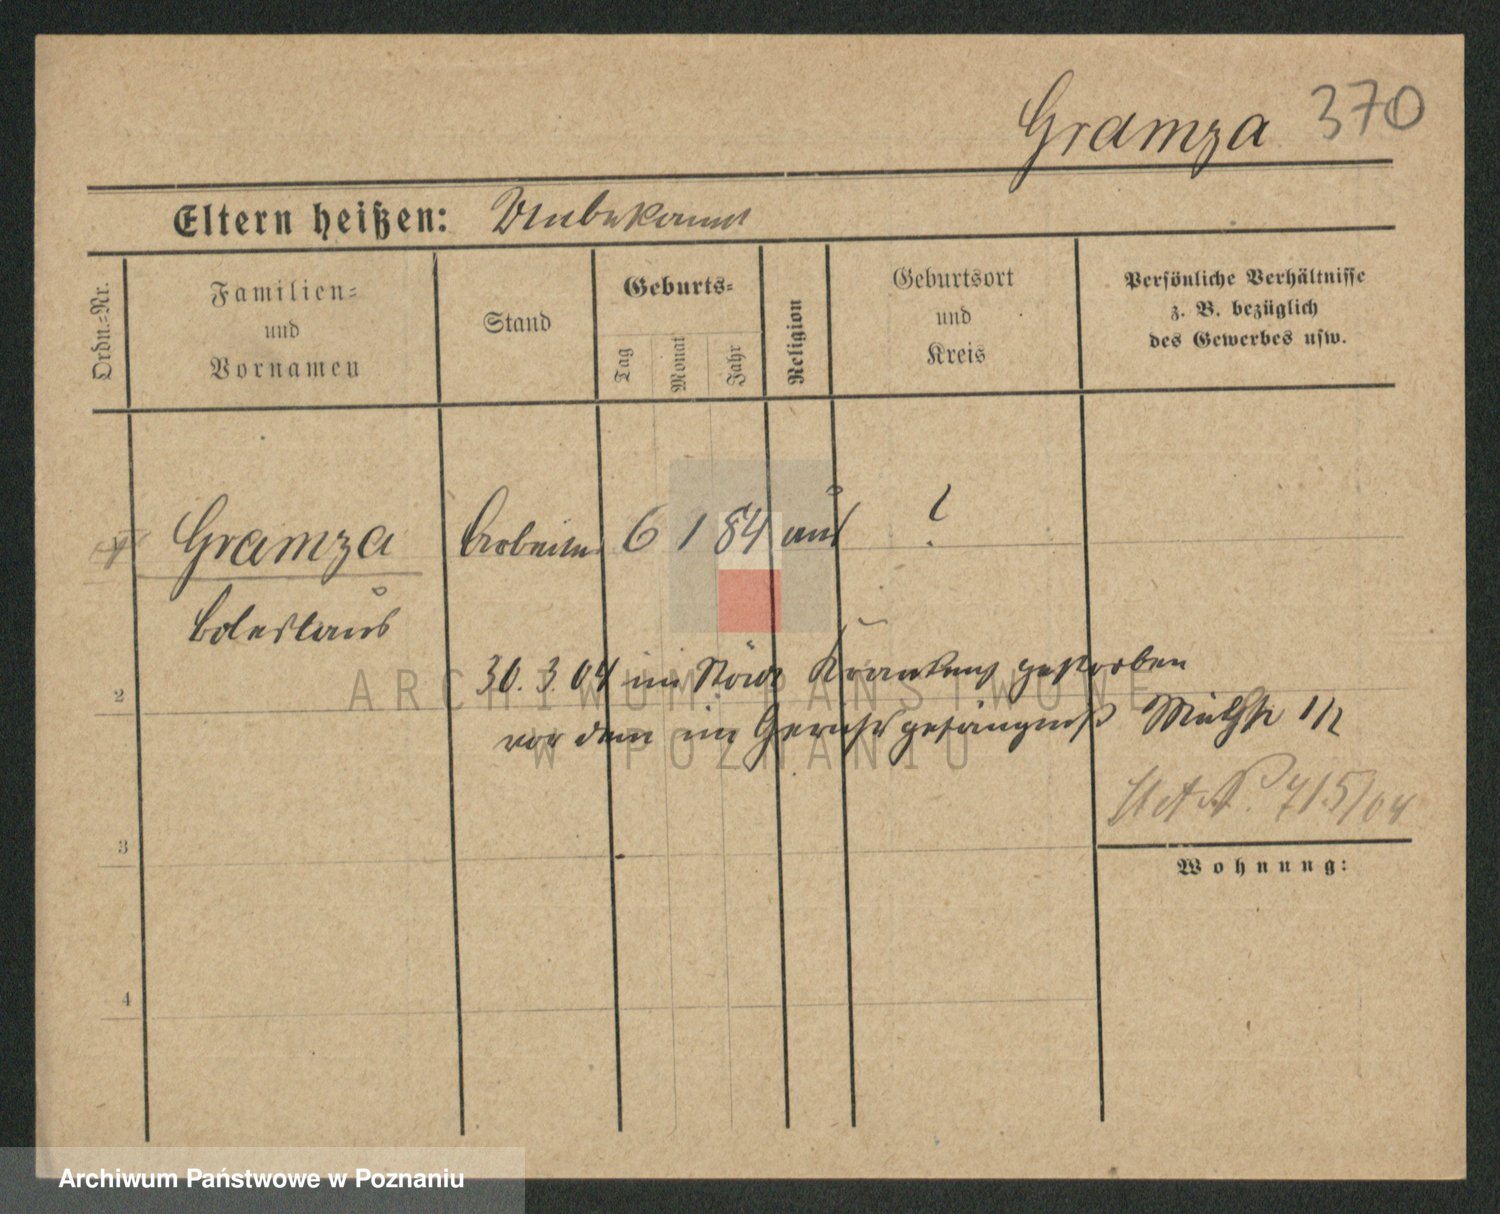 Gramza 370
Eltern heißen: Unbekannt
Ordn.-Nr.
Familien-
und
Vornamen
Stand
Geburts-
Tag
Monat
Jahr
Religion
Geburtsort
und
Kreis
Persönliche Verhältnisse
z. B. bezüglich
des Gewerbes usw.
1 Gramza Arbeiter 6 1 84 ?
Boleslaus
2
30. 3. 04 im Städt Krankenhs gestorben
vor dem im Gerichtsgefängniß Mühlstr 1/2
715/04
3
Wohnung:
4
ARCHIWUM PAŃSTWOWE
W POZNANIU
Archiwum Państwowe w Poznaniu